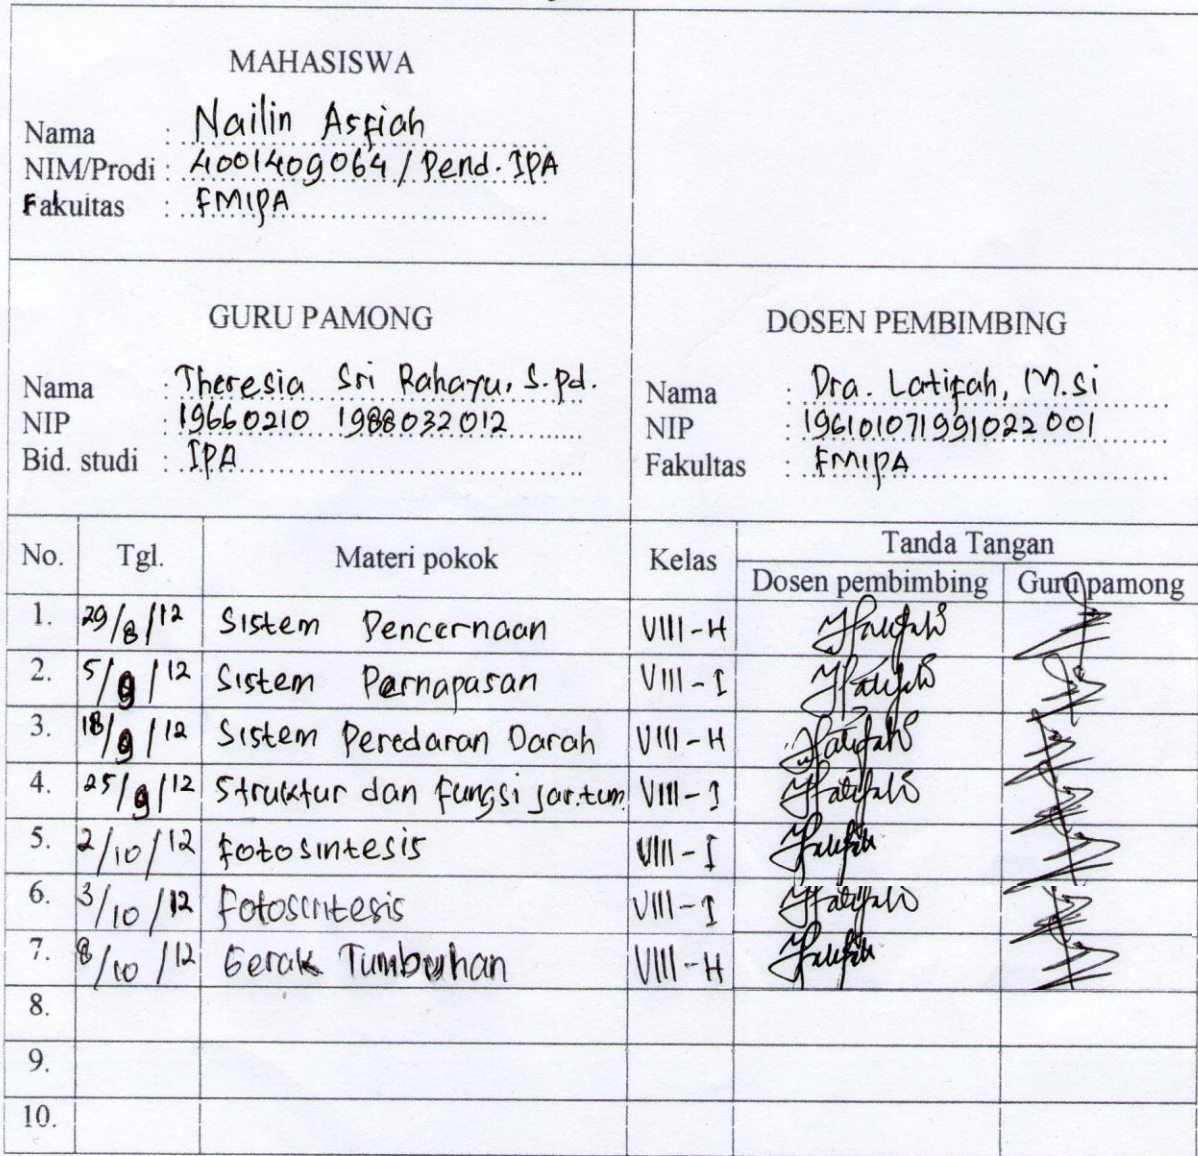 MAHASISWA
Nama : Nailin Asfiah
NIM/Prodi : 4001409064 / Pend. IPA
Fakultas : FMIPA
GURU PAMONG
Nama : Theresia Sri Rahayu, S.Pd.
NIP : 19660210 1988032012
Bid. studi : IPA
DOSEN PEMBIMBING
Nama : Dra. Latifah, M.si
NIP : 196101071991022001
Fakultas : FMIPA
No. Tgl. Materi pokok Kelas Tanda Tangan
Dosen pembimbing Guru pamong
1. 29/8/12 Sistem Pencernaan VIII-H
2. 5/9/12 Sistem Pernapasan VIII-I
3. 18/9/12 Sistem Peredaran Darah VIII-H
4. 25/9/12 Struktur dan fungsi jar.tum VIII-I
5. 2/10/12 fotosintesis VIII-I
6. 3/10/12 Fotosintesis VIII-I
7. 8/10/12 Gerak Tumbuhan VIII-H
8.
9.
10.